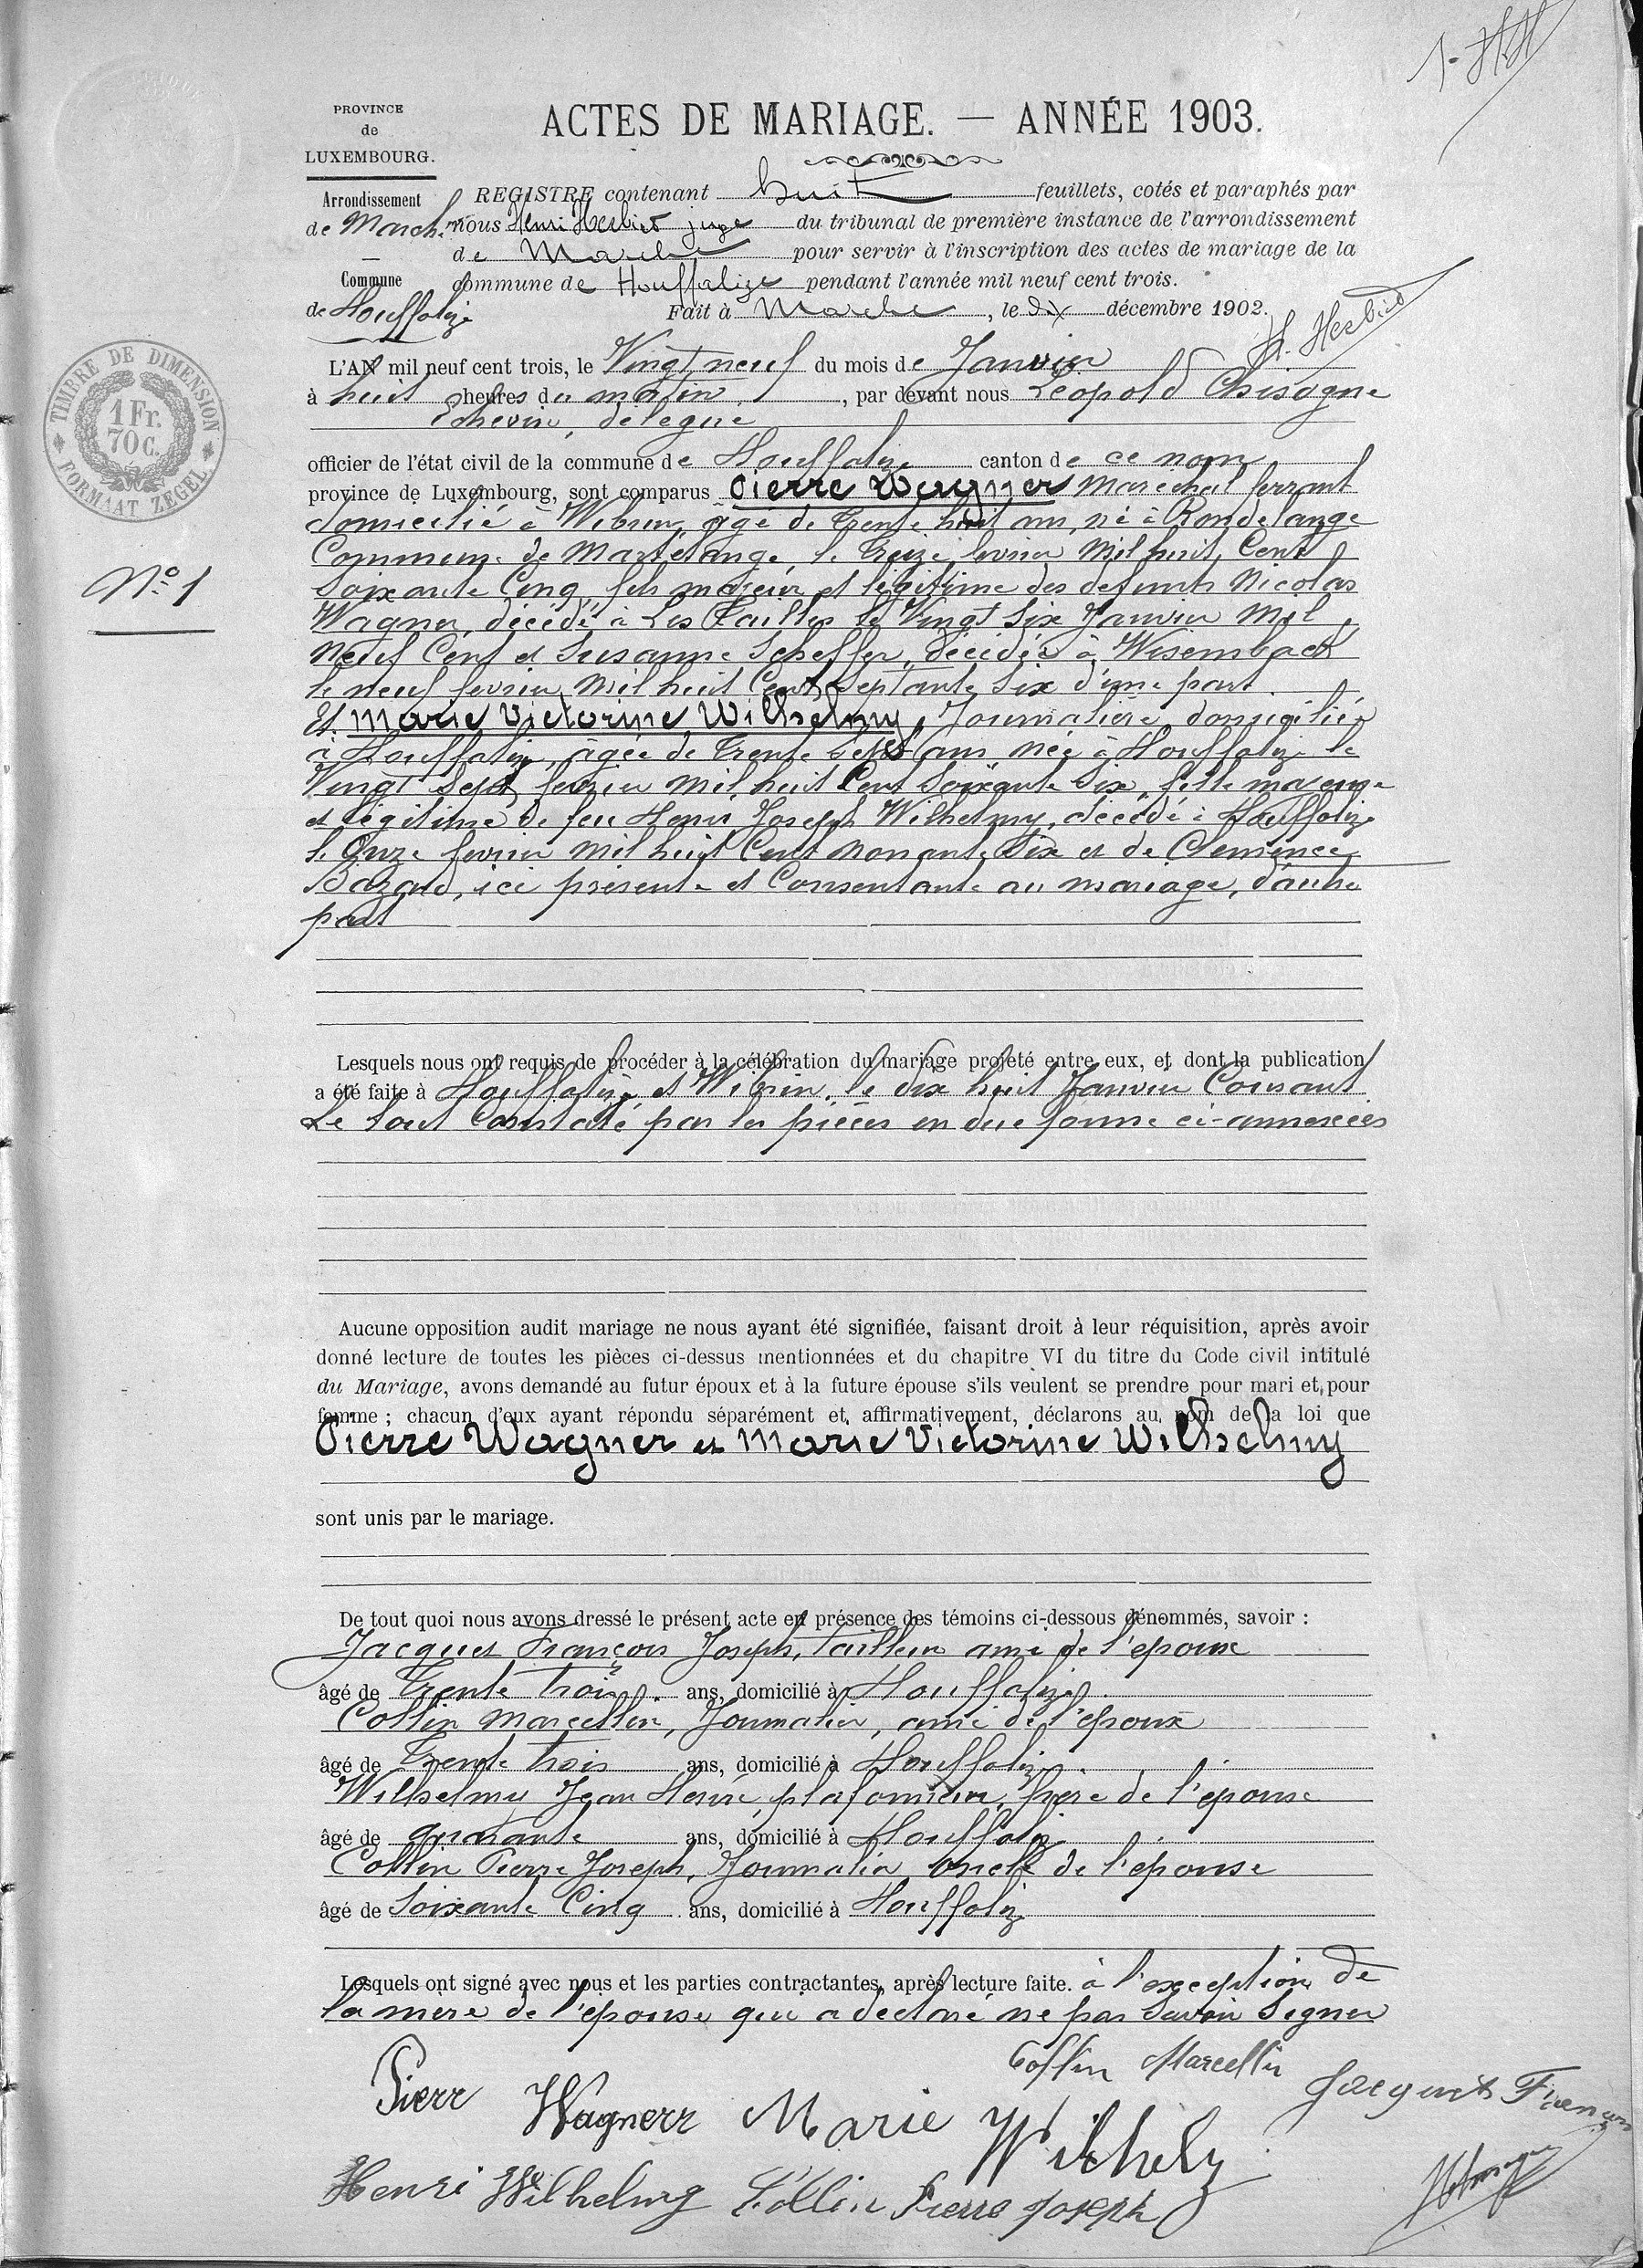 PROVINCE
de
LUXEMBOURG.
Arrondissement
de Marche
Commune
de Houffalize
ACTES DE MARIAGE. — ANNÉE 1903.
REGISTRE contenant huit feuillets, cotés et paraphés par
nous Henri Herbiet juge du tribunal de première instance de l'arrondissement
de Marche pour servir à l'inscription des actes de mariage de la
commune de Houffalize pendant l'année mil neuf cent trois.
Fait à Marche, le dix décembre 1902.
H. Herbiet
TIMBRE DE DIMENSION
1 Fr.
70 C.
FORMAAT ZEGEL
No 1
L'AN mil neuf cent trois, le Vingt neuf du mois de Janvier
à huit heures du matin, par devant nous Léopold Chisogne
Echevin, délégué
officier de l'état civil de la commune de Houffalize canton de ce nom
province de Luxembourg, sont comparus Pierre Wagner Marechal ferrant
domicilié à Wibrin, âgé de trente huit ans, né à Rondelange
Commune de Martelange le treize fevrier Mil huit Cent
Soixante Cinq, fils majeur et légitime des defunts Nicolas
Wagner, décédé à Les Tailles le Vingt Six Janvier Mil
Neuf Cent et Susanne Scheffer, décédée à Wisembach
le neuf fevrier Mil huit Cent Septante Six d'une part
Et Marie Victorine Wilhelmy, Journalière, domiciliée
à Houffalize, âgée de Trente Sept ans, née à Houffalize le
Vingt Sept fevrier mil huit Cent Soixante Six, fille majeure
et légitime de feu Henri Joseph Wilhelmy, décédé à Houffalize
le Onze fevrier Mil huit Cent Nonante Six et de Clémence
Bazard, ici présente et Consentante au mariage, d'autre
part
Lesquels nous ont requis de procéder à la célébration du mariage projeté entre eux, et dont la publication
a été faite à Houffalize et Wibrin, le dix huit Janvier Courant
Le tout Constaté par les pièces en due forme ci-annexées
Aucune opposition audit mariage ne nous ayant été signifiée, faisant droit à leur réquisition, après avoir
donné lecture de toutes les pièces ci-dessus mentionnées et du chapitre VI du titre du Code civil intitulé
du Mariage, avons demandé au futur époux et à la future épouse s'ils veulent se prendre pour mari et pour
femme ; chacun d'eux ayant répondu séparément et affirmativement, déclarons au nom de la loi que
Pierre Wagner et Marie Victorine Wilhelmy
sont unis par le mariage.
De tout quoi nous avons dressé le présent acte en présence des témoins ci-dessous dénommés, savoir :
Jacquet François Joseph, tailleur ami de l'epoux
âgé de Trente trois ans, domicilié à Houffalize
Collin Marcellin, Journalier, ami de l'epoux
âgé de Trente trois ans, domicilié à Houffalize
Wilhelmy Jean Henri, plafonneur, frere de l'épouse
âgé de quarante ans, domicilié à Houffalize
Collin Pierre Joseph, Journalier, oncle de l'epouse
âgé de Soixante Cinq ans, domicilié à Houffalize
Lesquels ont signé avec nous et les parties contractantes, après lecture faite. à l'exception de
la mère de l'épouse qui a declaré ne pas Savoir Signer
Collin Marcellin
Pierr Wagnerr Marie Wilhely
Henri Wilhelmy Collin Pierre Joseph